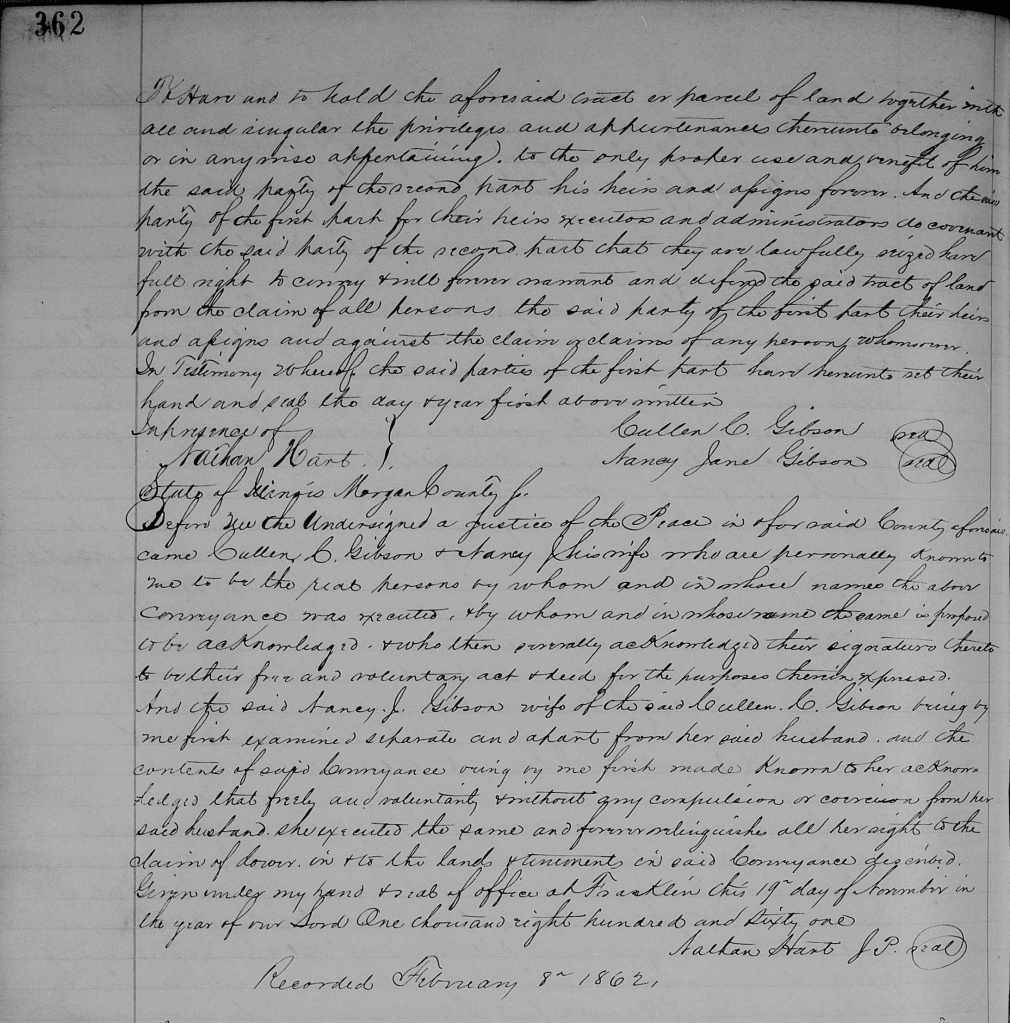 362
To Have and to hold the aforesaid tract or parcel of land together with
all and singular the privileges and appurtenances thereunto belonging
or in anywise appertaining). to the only proper use and benefit of him
the said party of the second part his heirs and assigns forever. And the said
party of the first part for their heirs executors and administrators do covenant
with the said party of the second part that they are lawfully seized have
full right to convey & will forever warrant and defend the said tract of land
from the claim of all persons the said party of the first part their heirs
and assigns and against the claim or claims of any person whomsoever.
In Testimony Whereof, the said partie of the first part have hereunto set their
hand and seal the day & year first above written
In presence of } Cullen C. Gibson seal
Nathan Hart. Nancy Jane Gibson seal
State of Illinois Morgan County ss.
Before Me the Undersigned a Justice of the Peace in & for said County aforesaid
came Cullen C. Gibson & Nancy J his wife who are personally Known to
me to be the real persons by whom and in whose names the above
Conveyance was executed, & by whom and in whose name the same is proposed
to be acKnowledged. & who then severally acKnowledged their signatures thereto
to be their free and voluntary act & deed for the purposes therein expressed.
And the said Nancy. J. Gibson wife of the said Cullen. C. Gibson being by
me first examined separate and apart from her said husband. and the
contents of said Conveyance being by me first made Known to her acKnow-
ledged that freely and voluntarily & without any compulsion or coercion from her
said husband. she executed the same and forever relinquishes all her right to the
claim of dower. in & to the lands & tenements in said Conveyance described.
Given under my hand & seal of office at Franklin this 19th day of November in
the year of our Lord One thousand eight hundred and Sixty one
Nathan Hart J.P. seal
Recorded February 8th 1862,